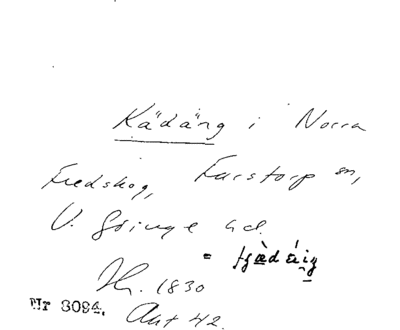 Kädäng i Norra
Fredskog, Farstorp sn,
V. Göinge hd.
=
1830
Nr 3094. Ant 42.